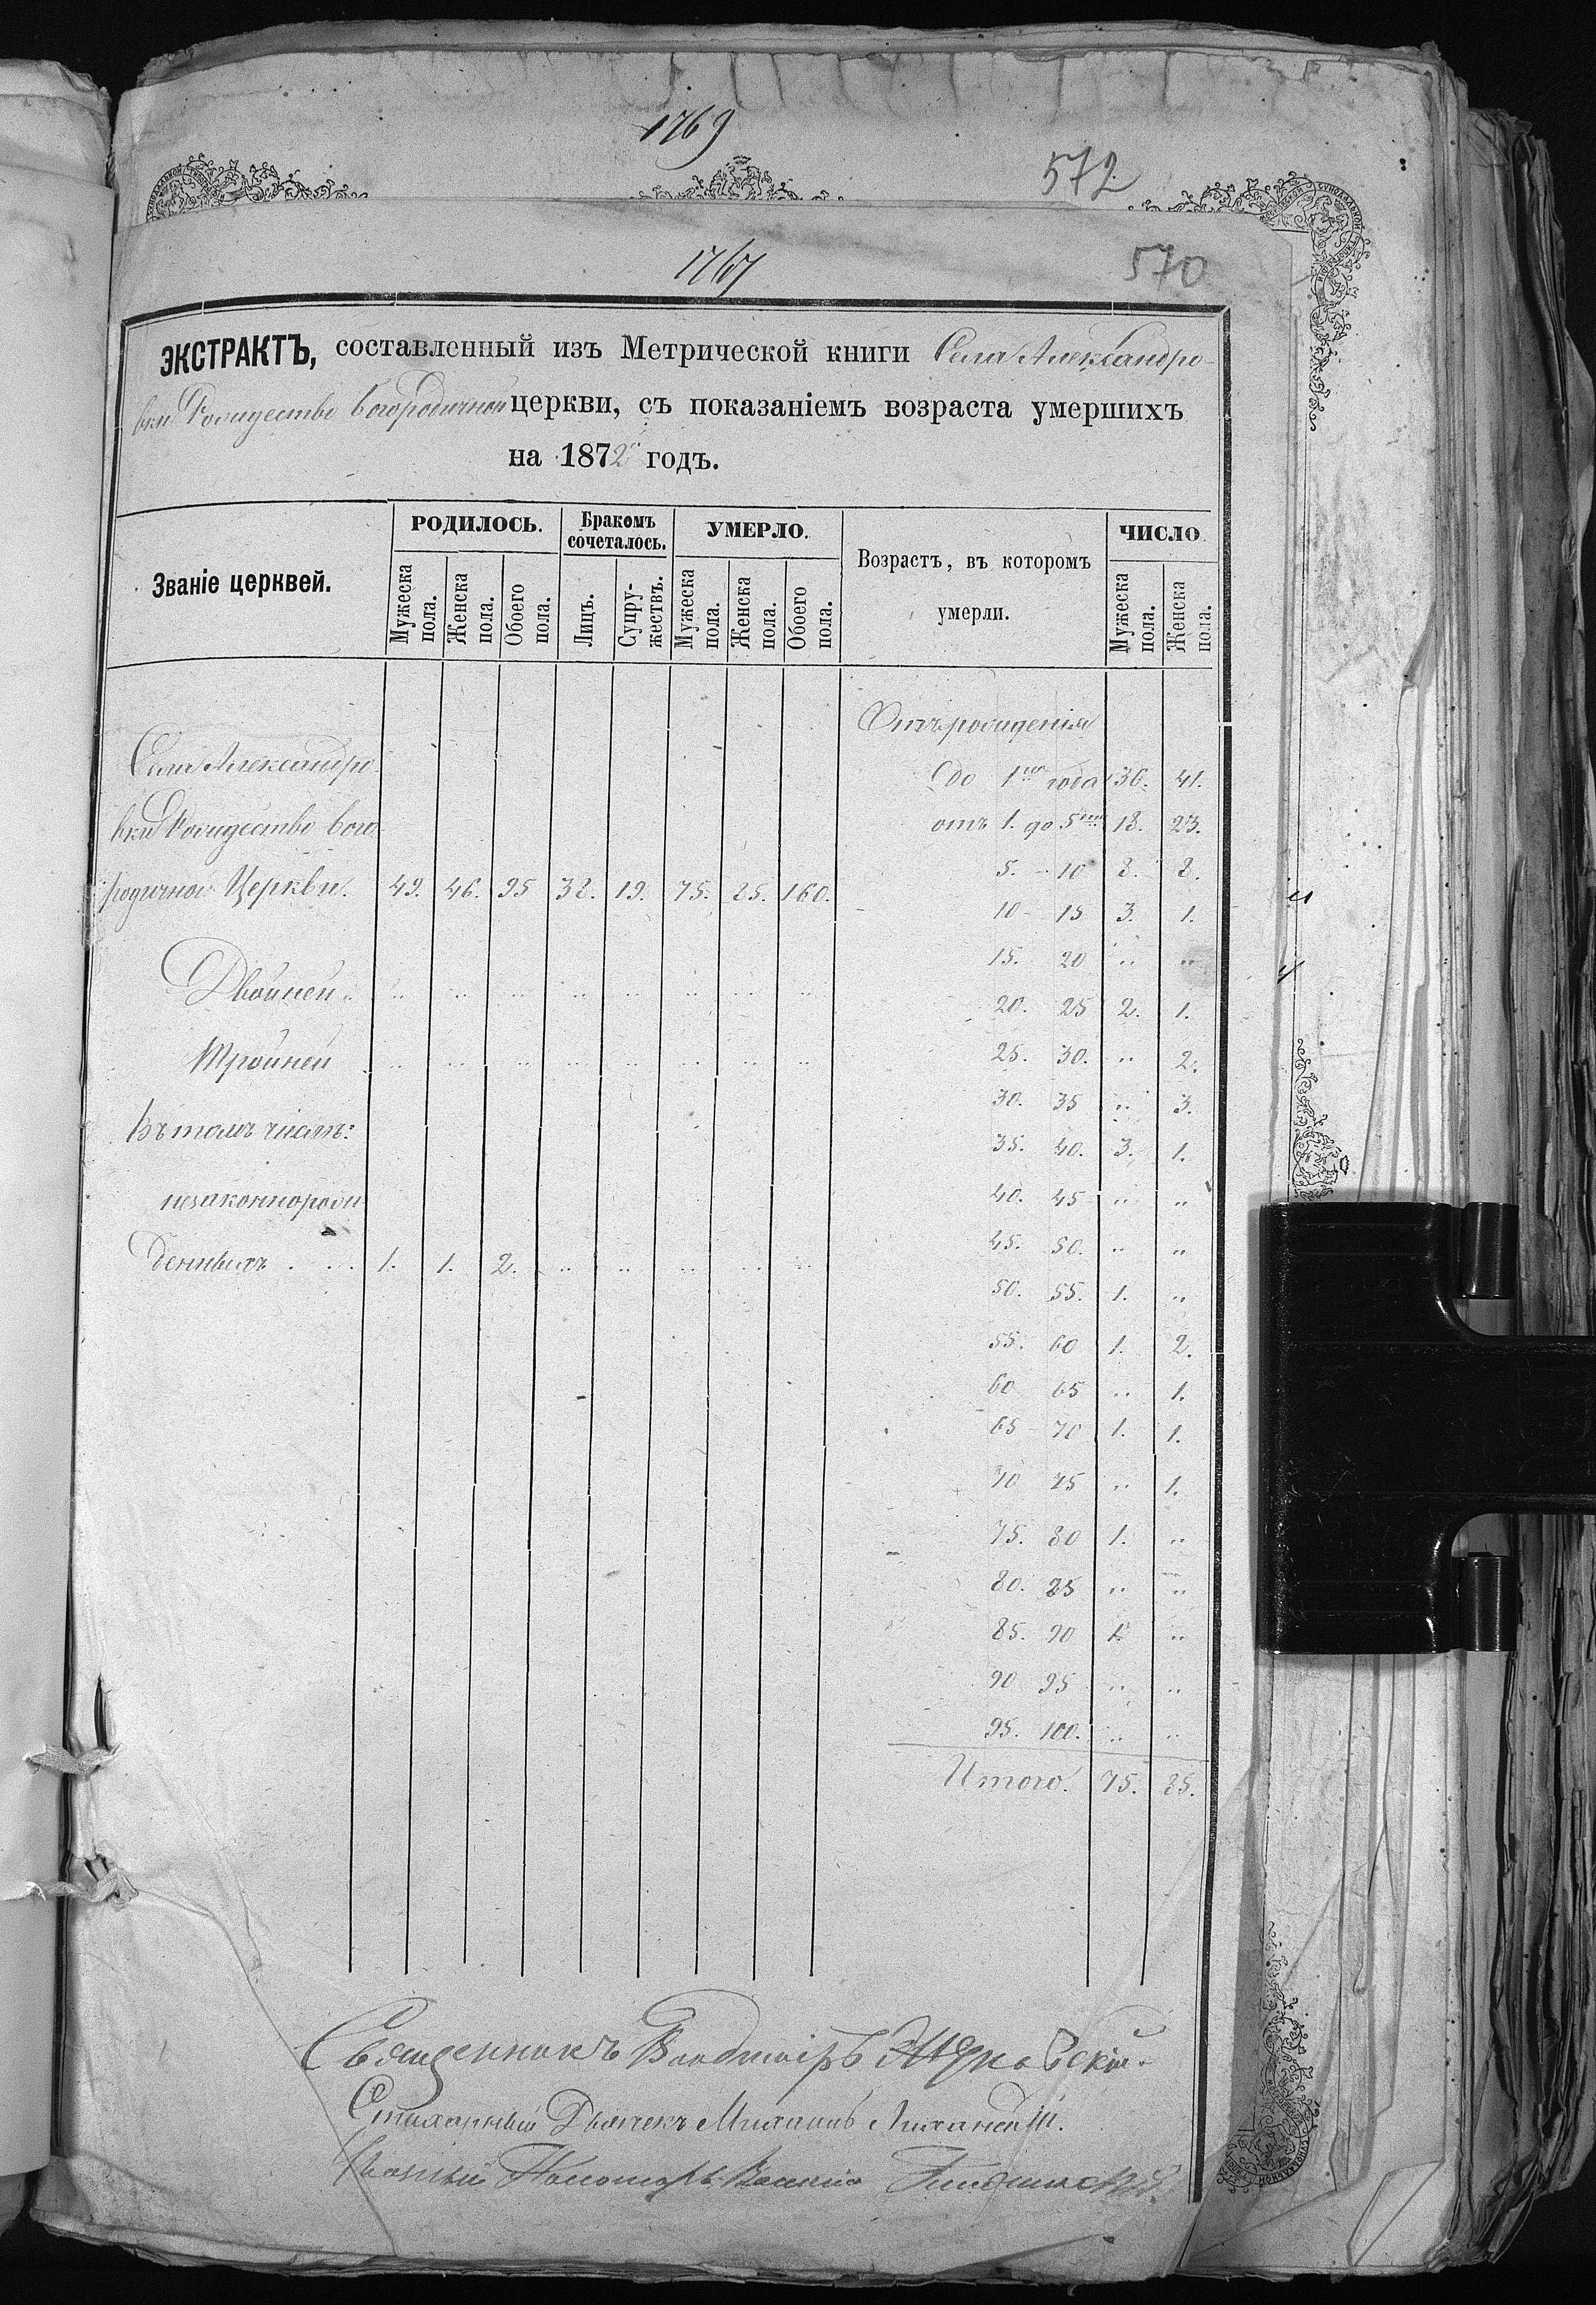 1769
572
1767
570
ЭКСТРАКТЪ, составленный изъ Метрической книги Села Александро-
вки Рождество Богородичной церкви, съ показаніемъ возраста умершихъ
на 1872 годъ.
Званіе церквей. РОДИЛОСЬ. Бракомъ сочеталось. УМЕРЛО. Возрастъ, въ которомъ умерли. ЧИСЛО
Мужеска пола. Женска пола. Обоего пола. Лицъ. Супружествъ. Мужеска пола. Женска пола. Обоего пола. Мужеска пола. Женска пола.
Отъ рожденія
Села Александро-
до 1го года 36. 41.
вки Рождество Бого-
отъ 1. до 5ти 18. 23.
5. - 10 8. 8.
родичной Церкви. 49. 46. 95 38. 19. 75. 85. 160.
10 - 15 3. 1.
15. 20 .. ..
Двойней .. .. .. .. .. .. .. .. ..
20. 25 2. 1.
Тройней .. .. .. .. .. .. .. ..
25. 30. .. 2.
30. 35 .. 3.
Въ томъ числѣ:
35. 40. 3. 1.
незаконнорож-
40. 45 .. ..
45. 50. .. ..
денныхъ . . . 1. 1. 2. .. .. .. .. ..
50. 55. 1. ..
55. 60 1. 2.
60 65 .. 1.
65 - 70 1. 1.
70 75 .. 1.
75. 80 1. ..
80. 85 .. ..
85. 90 1. ..
90 95 .. ..
95. 100. .. ..
Итого. 75. 85.
Священникъ Владиміръ
Стихарный Дьячекъ Михаилъ
Пономарь Василій